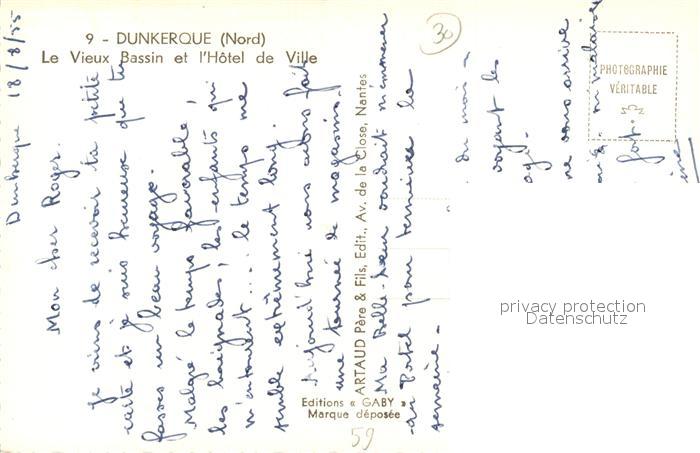 9 - DUNKERQUE (Nord)
Le Vieux Bassin et l'Hôtel de Ville
30
PHOTOGRAPHIE
VÉRITABLE
Dunkerque 18/8/55
Mon cher Roger.
Je viens de recevoir ta petite
carte et je suis heureuse que tu
fasses un beau voyage.
Malgré le temps favorable,
les baignades, les enfants qui
m'entourent... le temps me
semble extrêmement long.
Aujourd'hui nous avons fait
une tournée de magasins.
Ma Belle-Sœur voudrait m'emmener
au Portel pour terminer la
semaine.
du mois
voyant les
ne vous arrive
fort.
ARTAUD Père & Fils, Edit., Av. de la Close, Nantes
Editions « GABY »
Marque déposée
59
privacy protection
Datenschutz